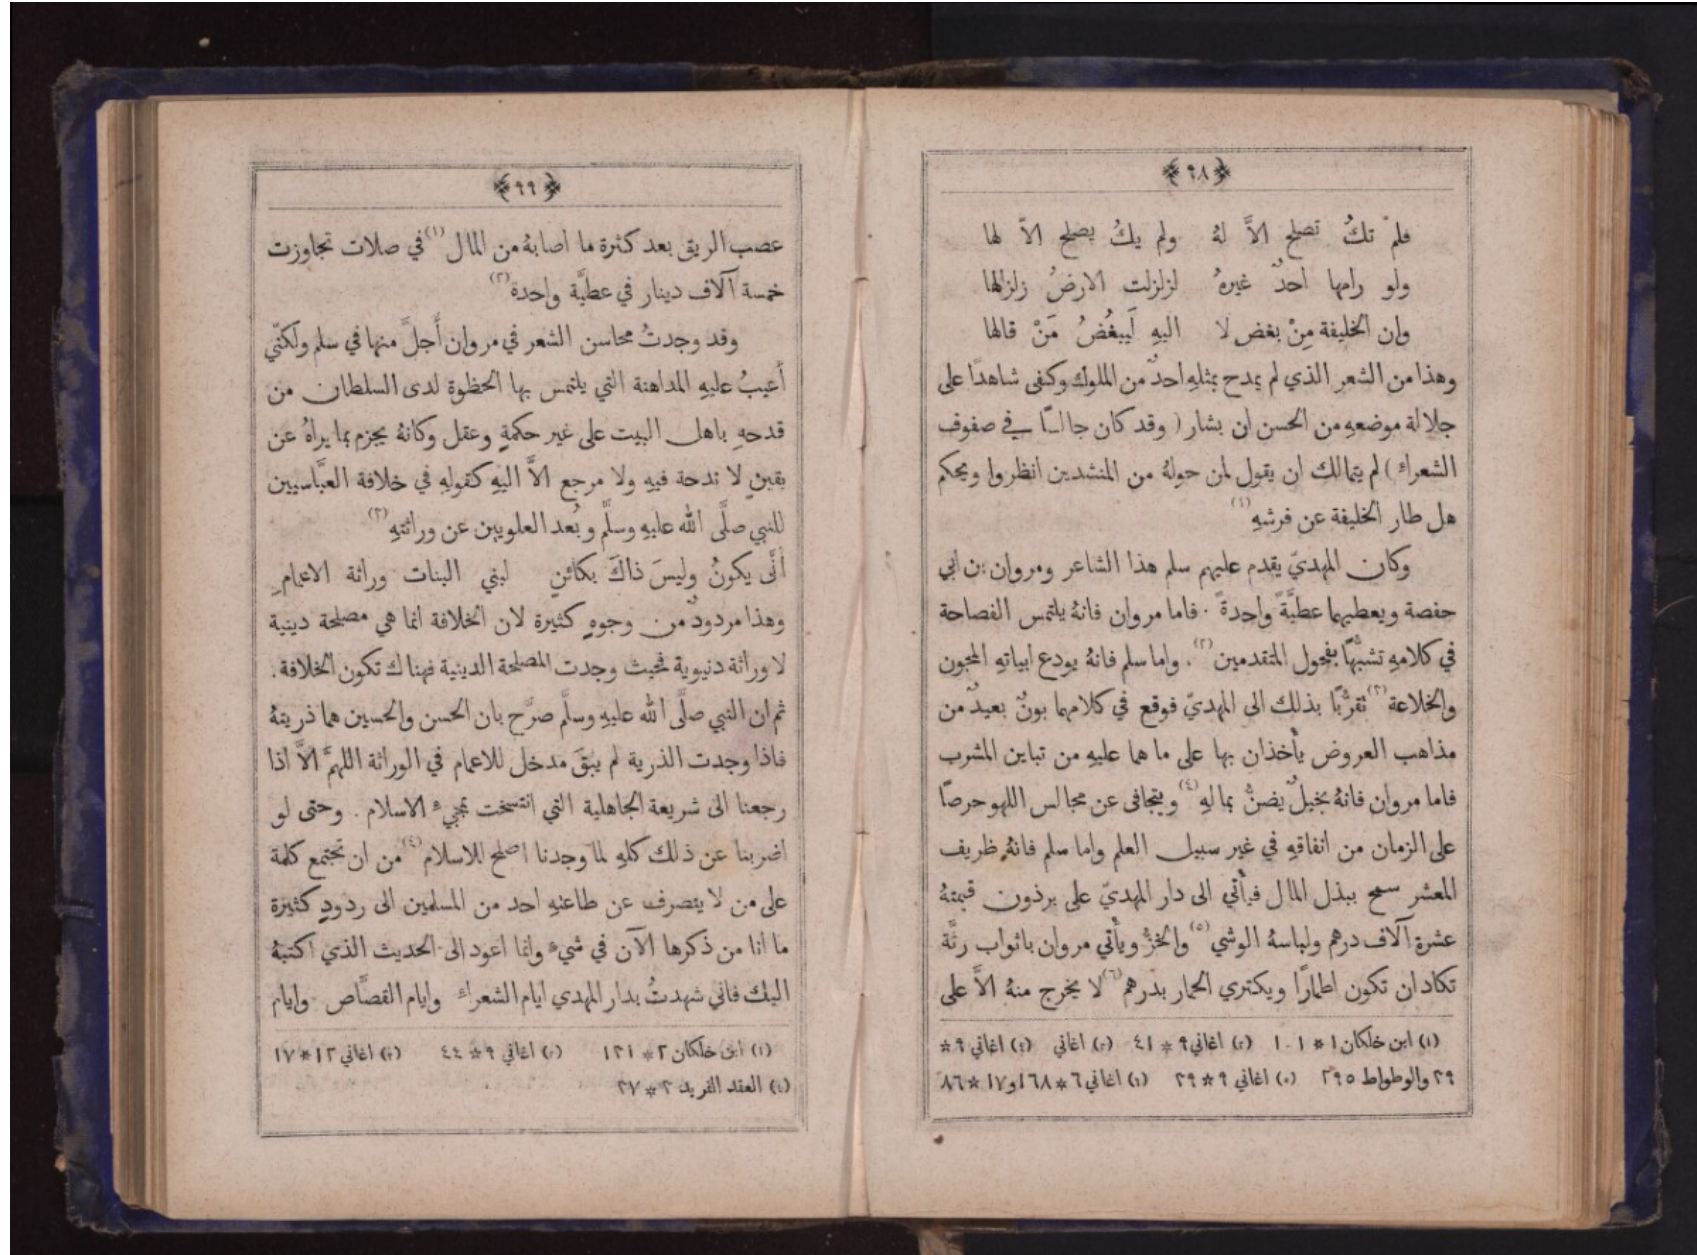 ﴿٩٨﴾
فلم تكُ تصلح الاَّ لهُ ولم يكُ يصلح الاّ لها
ولو رامها احدٌ غيرهُ لزلزلت الارضُ زلزالها
وإن الخليفة مِنْ بغض لا اليهِ لَيبغُضُ مَنْ قالها
وهذا من الشعر الذي لم يمدح بمثلهِ احدٌ من الملوك وكفى شاهدًا على
جلالة موضعهِ من الحسن ان بشار ( وقد كان جالسًا في صفوف
الشعراءِ ) لم يتمالك ان يقول لمن حولهُ من المنشدين انظروا ويحكم
هل طار الخليفة عن فرشهِ (١)
وكان المهديّ يقدم عليهم سلم هذا الشاعر ومروان بن ابي
حفصة ويعطيهما عطيَّةً واحدةً . فاما مروان فانهُ يلتمس الفصاحة
في كلامهِ تشبُّهًا بفحول المتقدمين (٢) . واما سلم فانهُ يودع ابياتهِ المجون
والخلاعة (٣) تقرُّبًا بذلك الى المهديّ فوقع في كلامهما بونٌ بعيدٌ من
مذاهب العروض يأخذان بها على ما هما عليهِ من تباين المشرب
فاما مروان فانهُ بخيلٌ يضنُّ بمالهِ (٤) ويتجافى عن مجالس اللهو حرصًا
على الزمان من انفاقهِ في غير سبيل العلم واما سلم فانهُ ظريف
المعشر سمح ببذل المال فيأتي الى دار المهديّ على برذون قيمتهُ
عشرة آلاف درهم ولباسهُ الوشي (٥) والخزُّ ويأتي مروان باثواب رثَّة
تكاد ان تكون اطمارًا ويكتري الحمار بدرهم (٦) لا يخرج منهُ الاَّ على
(١) ابن خلكان ١ * ١٠١ (٢) اغاني ٩ * ٤١ (٣) اغاني (٤) اغاني ٩ *
٣٩ والوطواط ٢٩٥ (٥) اغاني ٩ * ٣٩ (٦) اغاني ٦ * ١٦٨ و١٧ * ٨٦
﴿٩٩﴾
عصب الريق بعد كثرة ما اصابهُ من المال (١) في صلات تجاوزت
خمسة آلاف دينار في عطيَّة واحدة (٢)
وقد وجدتُ محاسن الشعر في مروان أَجلَّ منها في سلم ولكنّي
أَعيبُ عليهِ المداهنة التي يلتمس بها الحظوة لدى السلطان من
قدحهِ باهل البيت على غير حكمةٍ وعقل وكانهُ يجزم بما يراهُ عن
يقينٍ لا ندحة فيهِ ولا مرجع الاَّ اليهِ كقولهِ في خلافة العبَّاسيين
للنبي صلَّى الله عليهِ وسلَّم وبُعد العلويين عن وراثتهِ (٣)
أَنَّى يكونُ وليسَ ذاكَ بكائنٍ لبني البنات وراثة الاعمامِ
وهذا مردودٌ من وجوهٍ كثيرة لان الخلافة انما هي مصلحة دينية
لا وراثة دنيوية فحيث وجدت المصلحة الدينية فهناك تكون الخلافة .
ثم ان النبي صلَّى الله عليهِ وسلَّم صرَّح بان الحسن والحسين هما ذريتهُ
فاذا وجدت الذرية لم يبقَ مدخل للاعمام في الوراثة اللهمَّ الاَّ اذا
رجعنا الى شريعة الجاهلية التي انتسخت بمجيءِ الاسلام . وحتى لو
اضربنا عن ذلك كلهِ لما وجدنا اصلح للاسلام (٤) من ان تجتمع كلمة
على من لا يتصرف عن طاعتهِ احد من المسلمين الى ردودٍ كثيرة
ما انا من ذكرها الآن في شيءٍ وانما اعود الى الحديث الذي اكتبهُ
اليك فاني شهدتُ بدار المهدي ايام الشعراءِ وايام القصَّاص وايام
(١) ابن خلكان ٢ * ١٣١ (٢) اغاني ٩ * ٤٤ (٣) اغاني ١٢ * ١٧
(٤) العقد الفريد ٢ * ٢٧